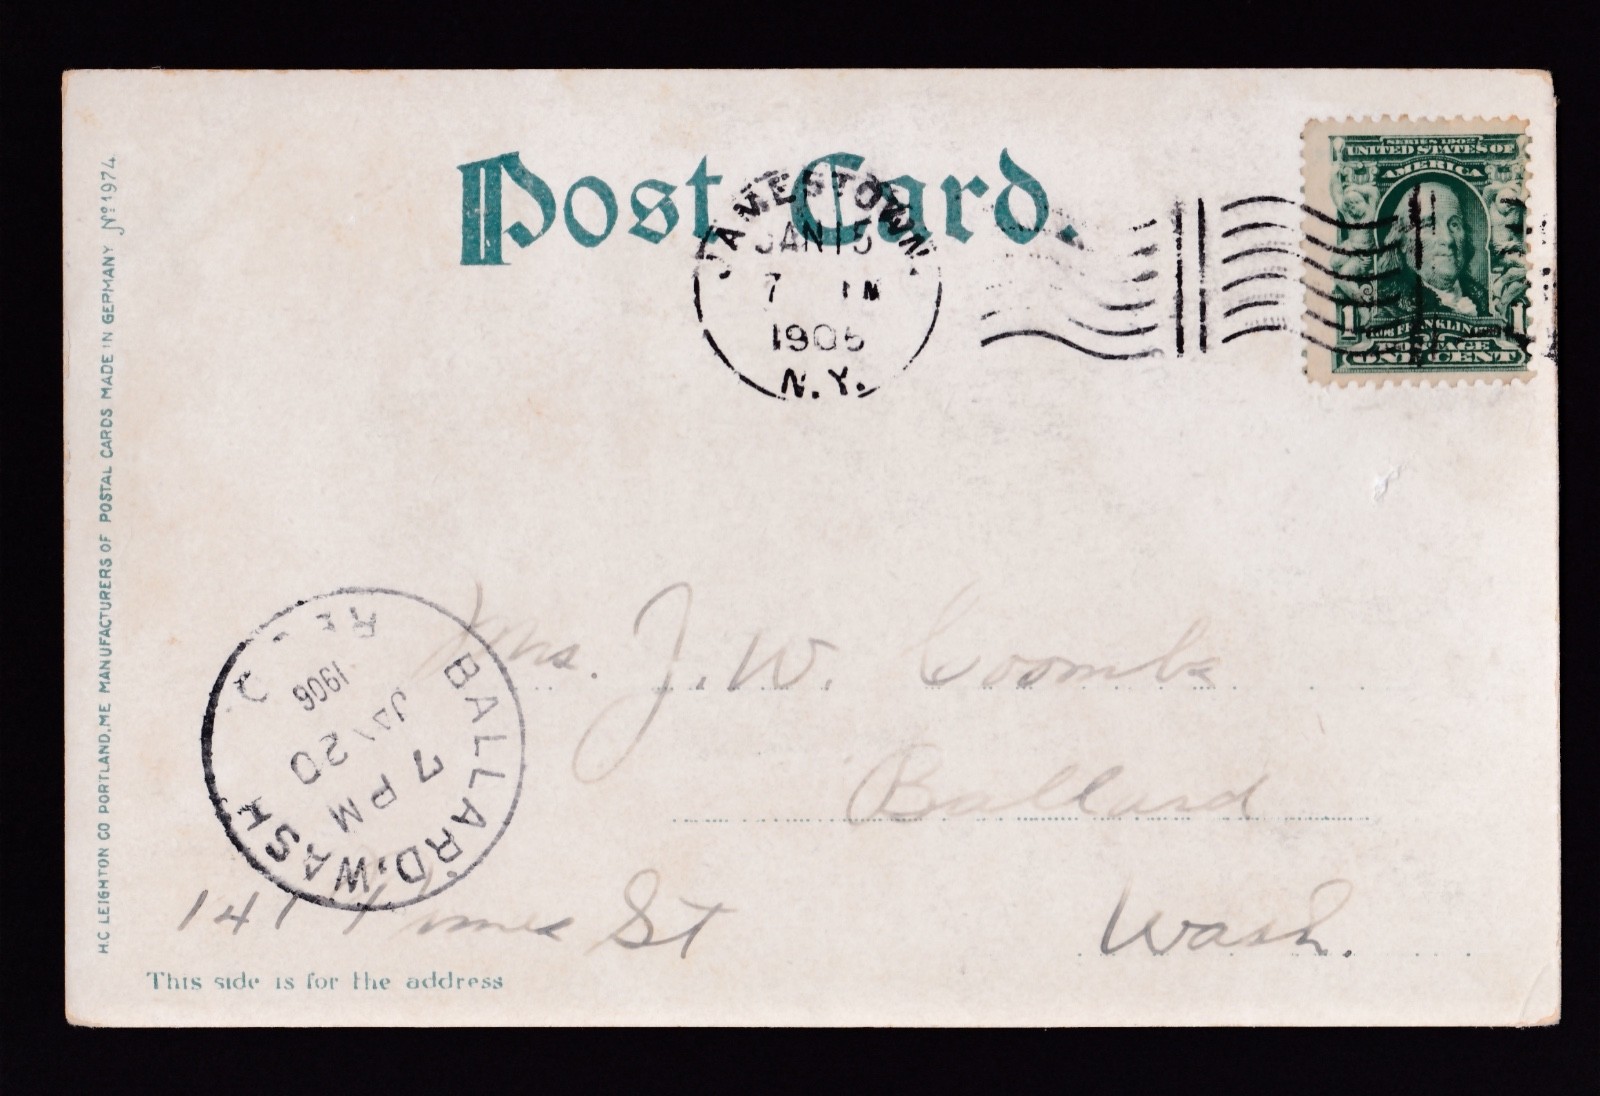 Post Card.
JAMESTOWN,
JAN 15
7
1906
N.Y.
SERIES 1902
UNITED STATES OF
AMERICA
FRANKLIN
1 1
POSTAGE
ONE CENT
H.C. LEIGHTON CO PORTLAND, ME MANUFACTURERS OF POSTAL CARDS MADE IN GERMANY No 1974
Mrs. J. W. Coombs
Ballard
Wash.
BALLARD, WASH
7 PM
JAN 20
1906
141 St
This side is for the address